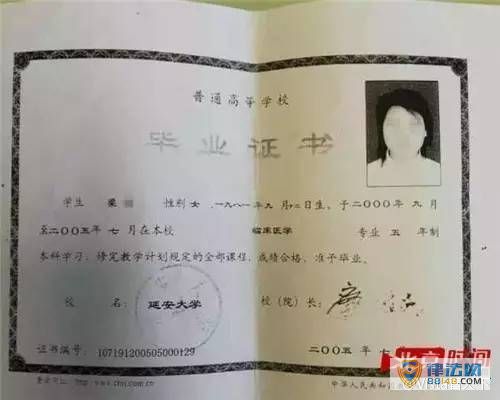 普通高等学校
毕业证书
学生 梁 性别 女 一九八一年九月十二日生,于二〇〇〇年 九月
至二〇〇五年 七月在本校 临床医学 专业 五 年制
本科学习,修完教学计划规定的全部课程,成绩合格,准予毕业。
校 名: 延安大学 校(院)长:
证书编号: 107191200505000129 二〇〇五年 七
查询网址: http://www.chsi.com.cn 中华人民共和
北京时间
律法网
88148.com